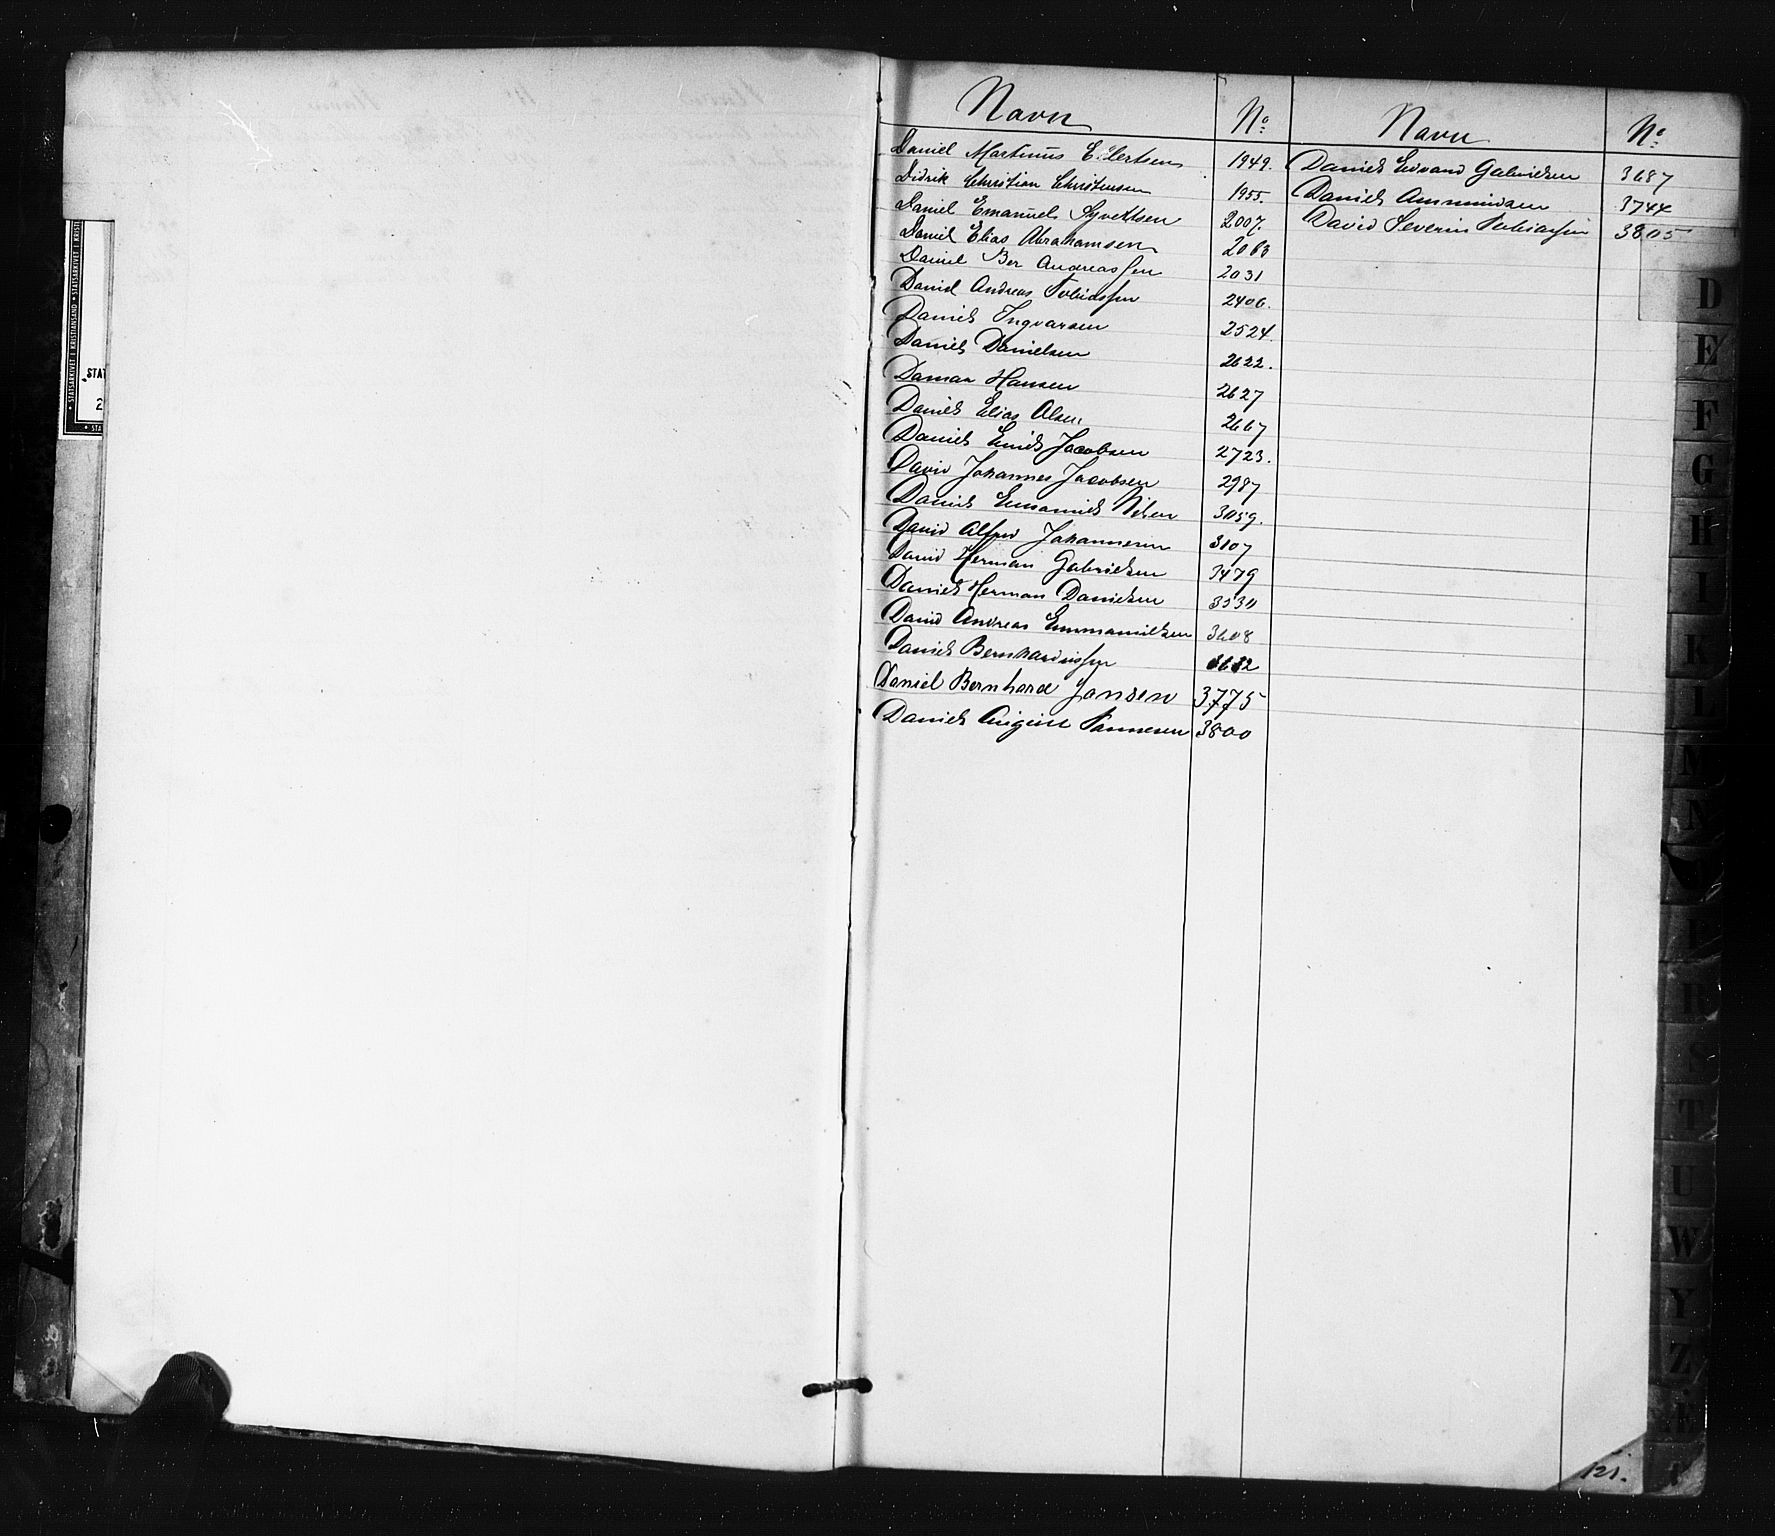 Navn No Navn No
Daniel Martinius Eilertsen 1949. Daniel Edvard Gabrielsen 3687
Didrik Christian Christensen 1955. Daniel 3744
Daniel Emanuel Syvertsen 2007. David Severin Tobiassen 3805
Daniel Elias Abrahamsen 2063
Daniel Ber Andreassen 2031
Daniel Andreas Tobiassen 2406.
Daniel Ingvarsen 2524.
Daniel Danielsen 2622.
Hansen 2627
Daniel Elias Olsen 2667
Daniel Emil Jacobsen 2723.
David Johannes Jacobsen 2987
Daniel Emanuel Nilsen 3059.
David Alfred Johannesen 3107
David Herman Gabrielsen 3479
Daniel Herman Danielsen 3530
David Andreas Emmanuelsen 3608
Daniel Bernhardussen 3632
Daniel Bernhard Jansen 3775
Daniel August Tønnesen 3800
D
E
F
G
H
I
K
L
M
N
P
R
S
T
U
W
Y
Z
121.
STATSARKIVET I KRISTIANSAND